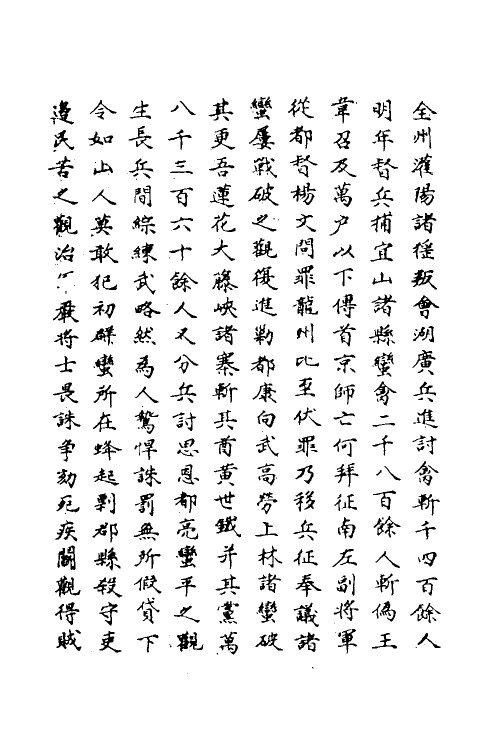 全州灌陽諸猺叛會湖廣兵進討禽斬千四百餘人
明年督兵捕宜山諸縣蠻禽二千八百餘人斬偽王
韋召及萬户以下傳首京師亡何拜征南左副將軍
從都督楊文問罪龍州比至伏罪乃移兵征奉議諸
蠻屢戰破之觀復進勦都康向武高勞上林諸蠻破
其更吾蓮花大藤峽諸寨斬其酋黄世鐵并其黨萬
八千三百六十餘人又分兵討思恩都亮蠻平之觀
生長兵間綜練武略然為人鷙悍誅罰無所假貸下
令如山人莫敢犯初群蠻所在蜂起剽郡縣殺守吏
邊民苦之觀治軍嚴將士畏誅争効死疾鬭觀得賊